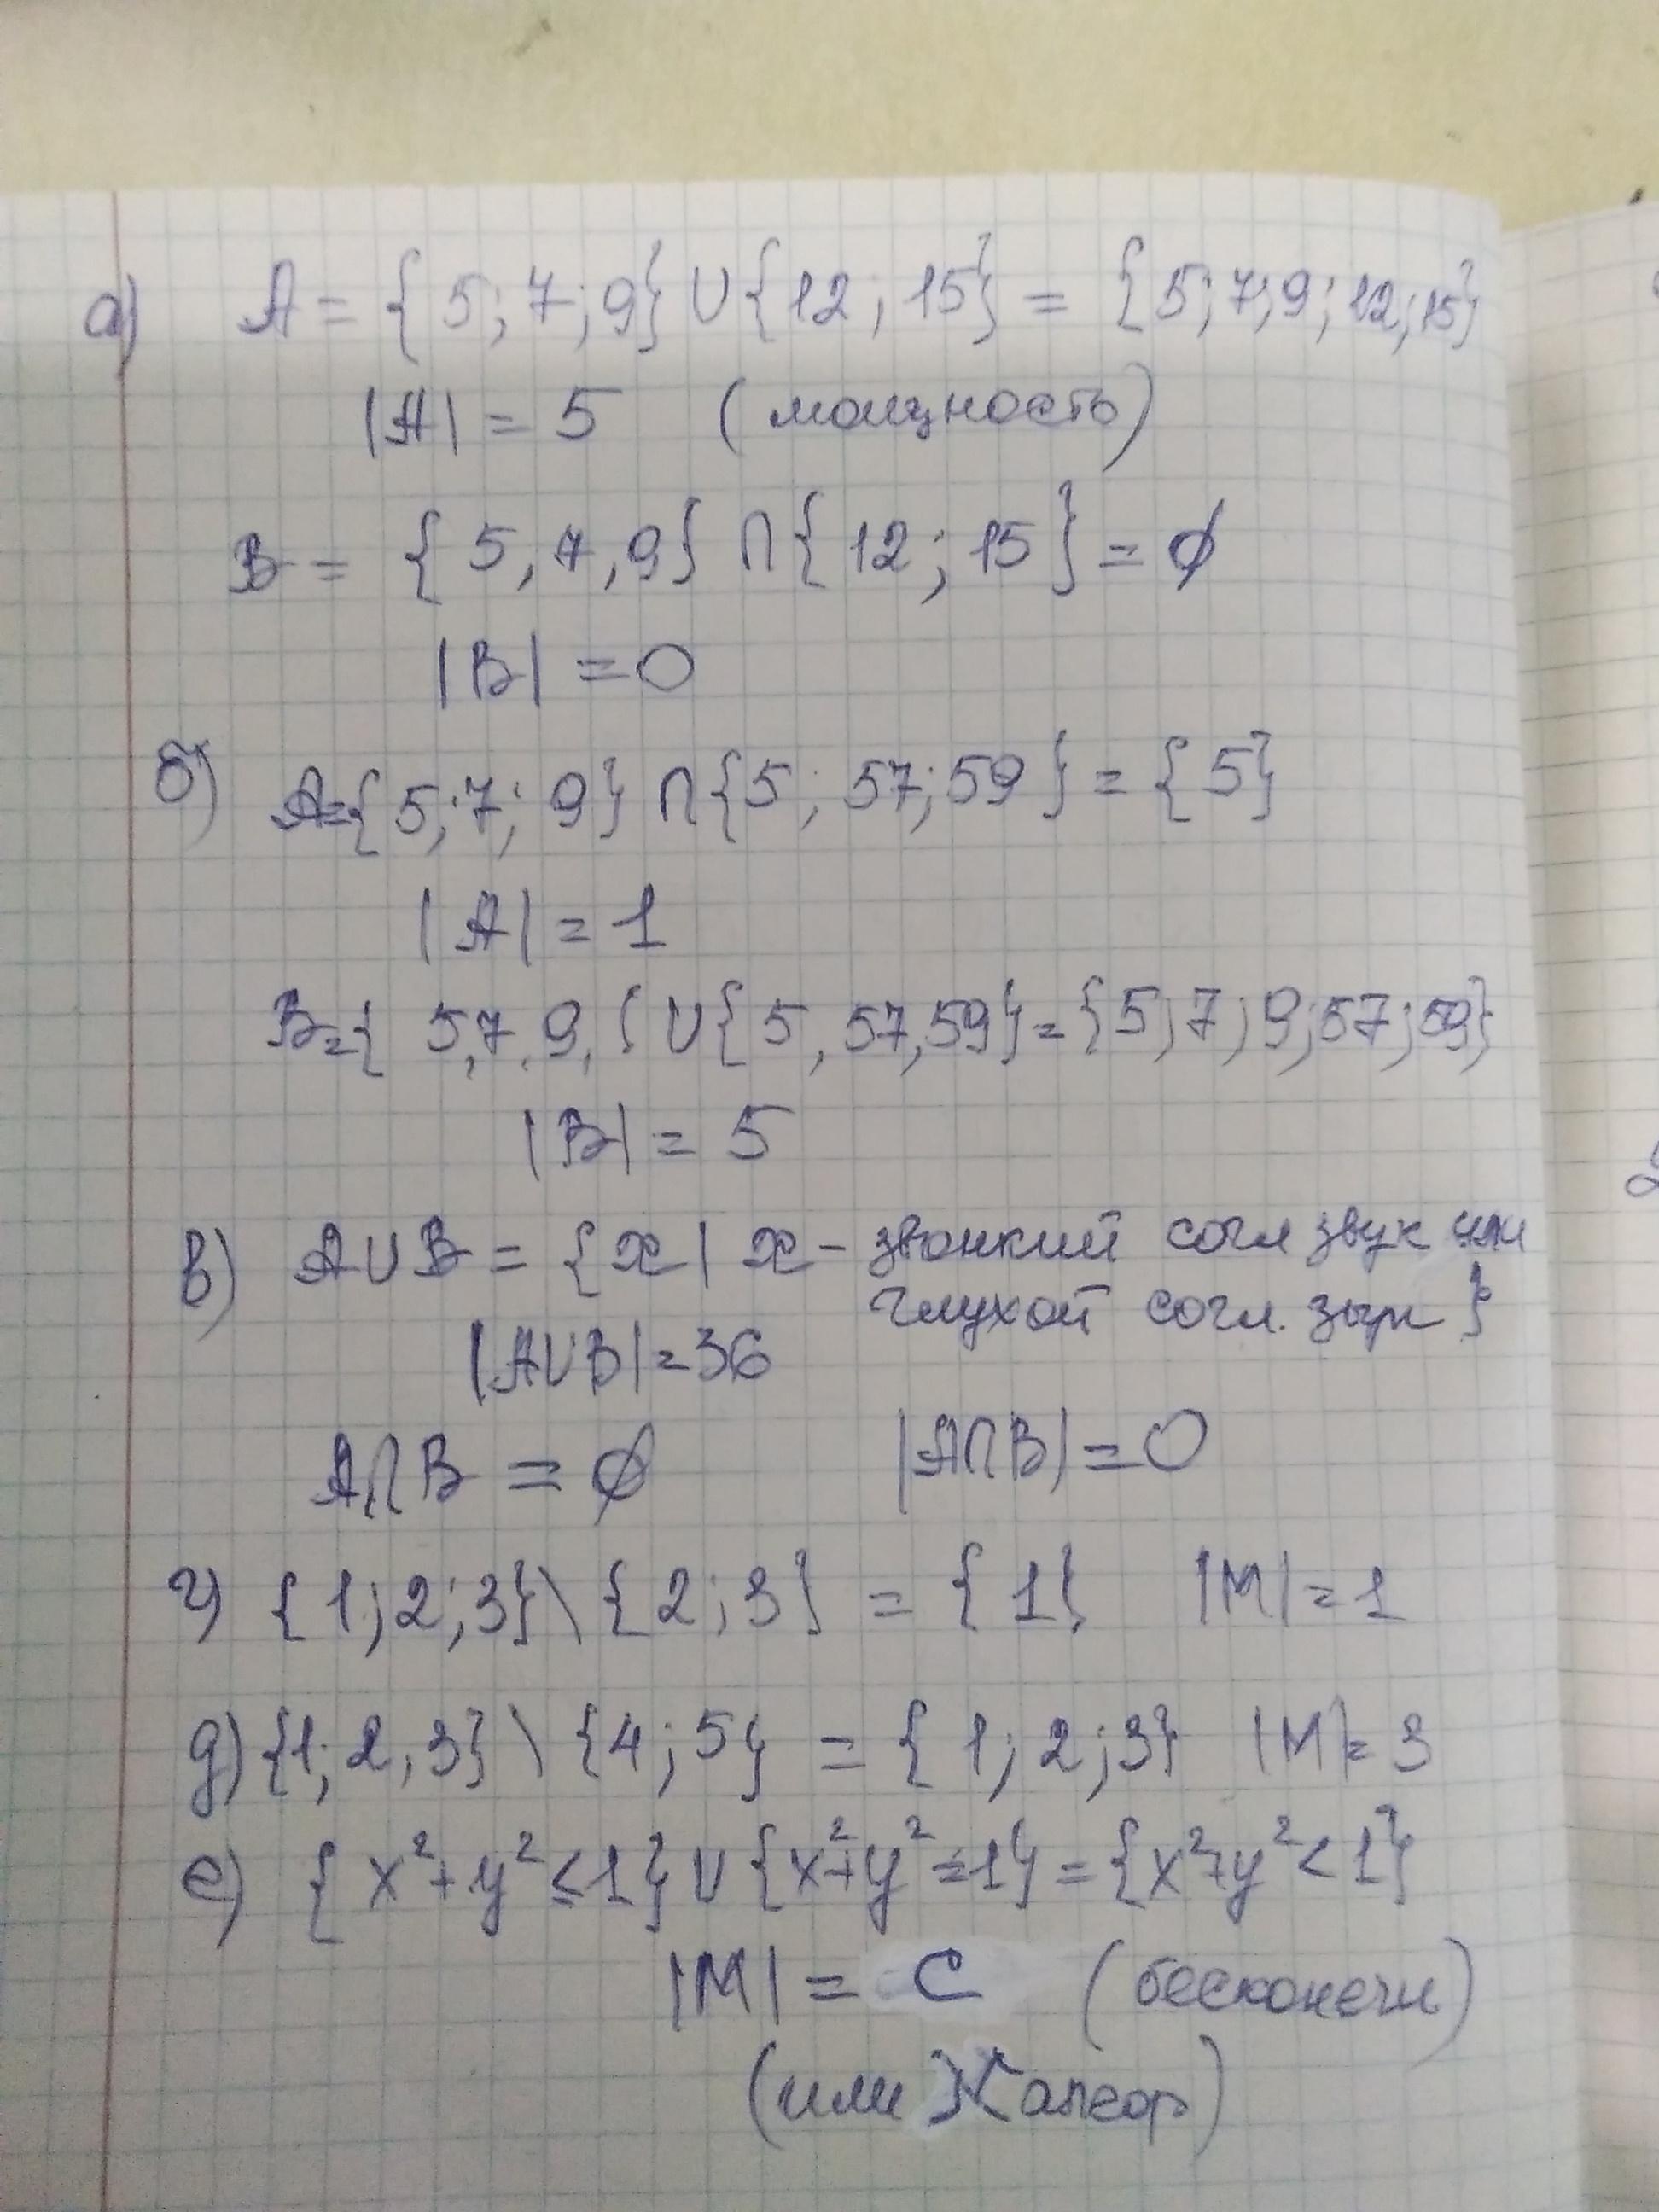 а) A = {5; 7; 9} ∪ {12; 15} = {5; 7; 9; 12; 15}
|A| = 5 (мощность)
B = {5, 7, 9} ∩ {12; 15} = ∅
|B| = 0
б) A = {5; 7; 9} ∩ {5; 57; 59} = {5}
|A| = 1
B = { 5, 7, 9, { ∪ {5, 57, 59} = {5; 7; 9; 57; 59}
|B| = 5
в) A ∪ B = {x | x - звонкий согл звук или
глухой согл. звук }
|A ∪ B| = 36
A ∩ B = ∅ |A ∩ B| = 0
г) {1; 2; 3} \ {2; 3} = {1} |M| = 1
д) {1; 2, 3} \ {4; 5} = {1; 2; 3} |M| = 3
е) {x² + y² ≤ 1} ∪ {x² + y² = 1} = {x² + y² < 1}
|M| = C (бесконечн)
(или